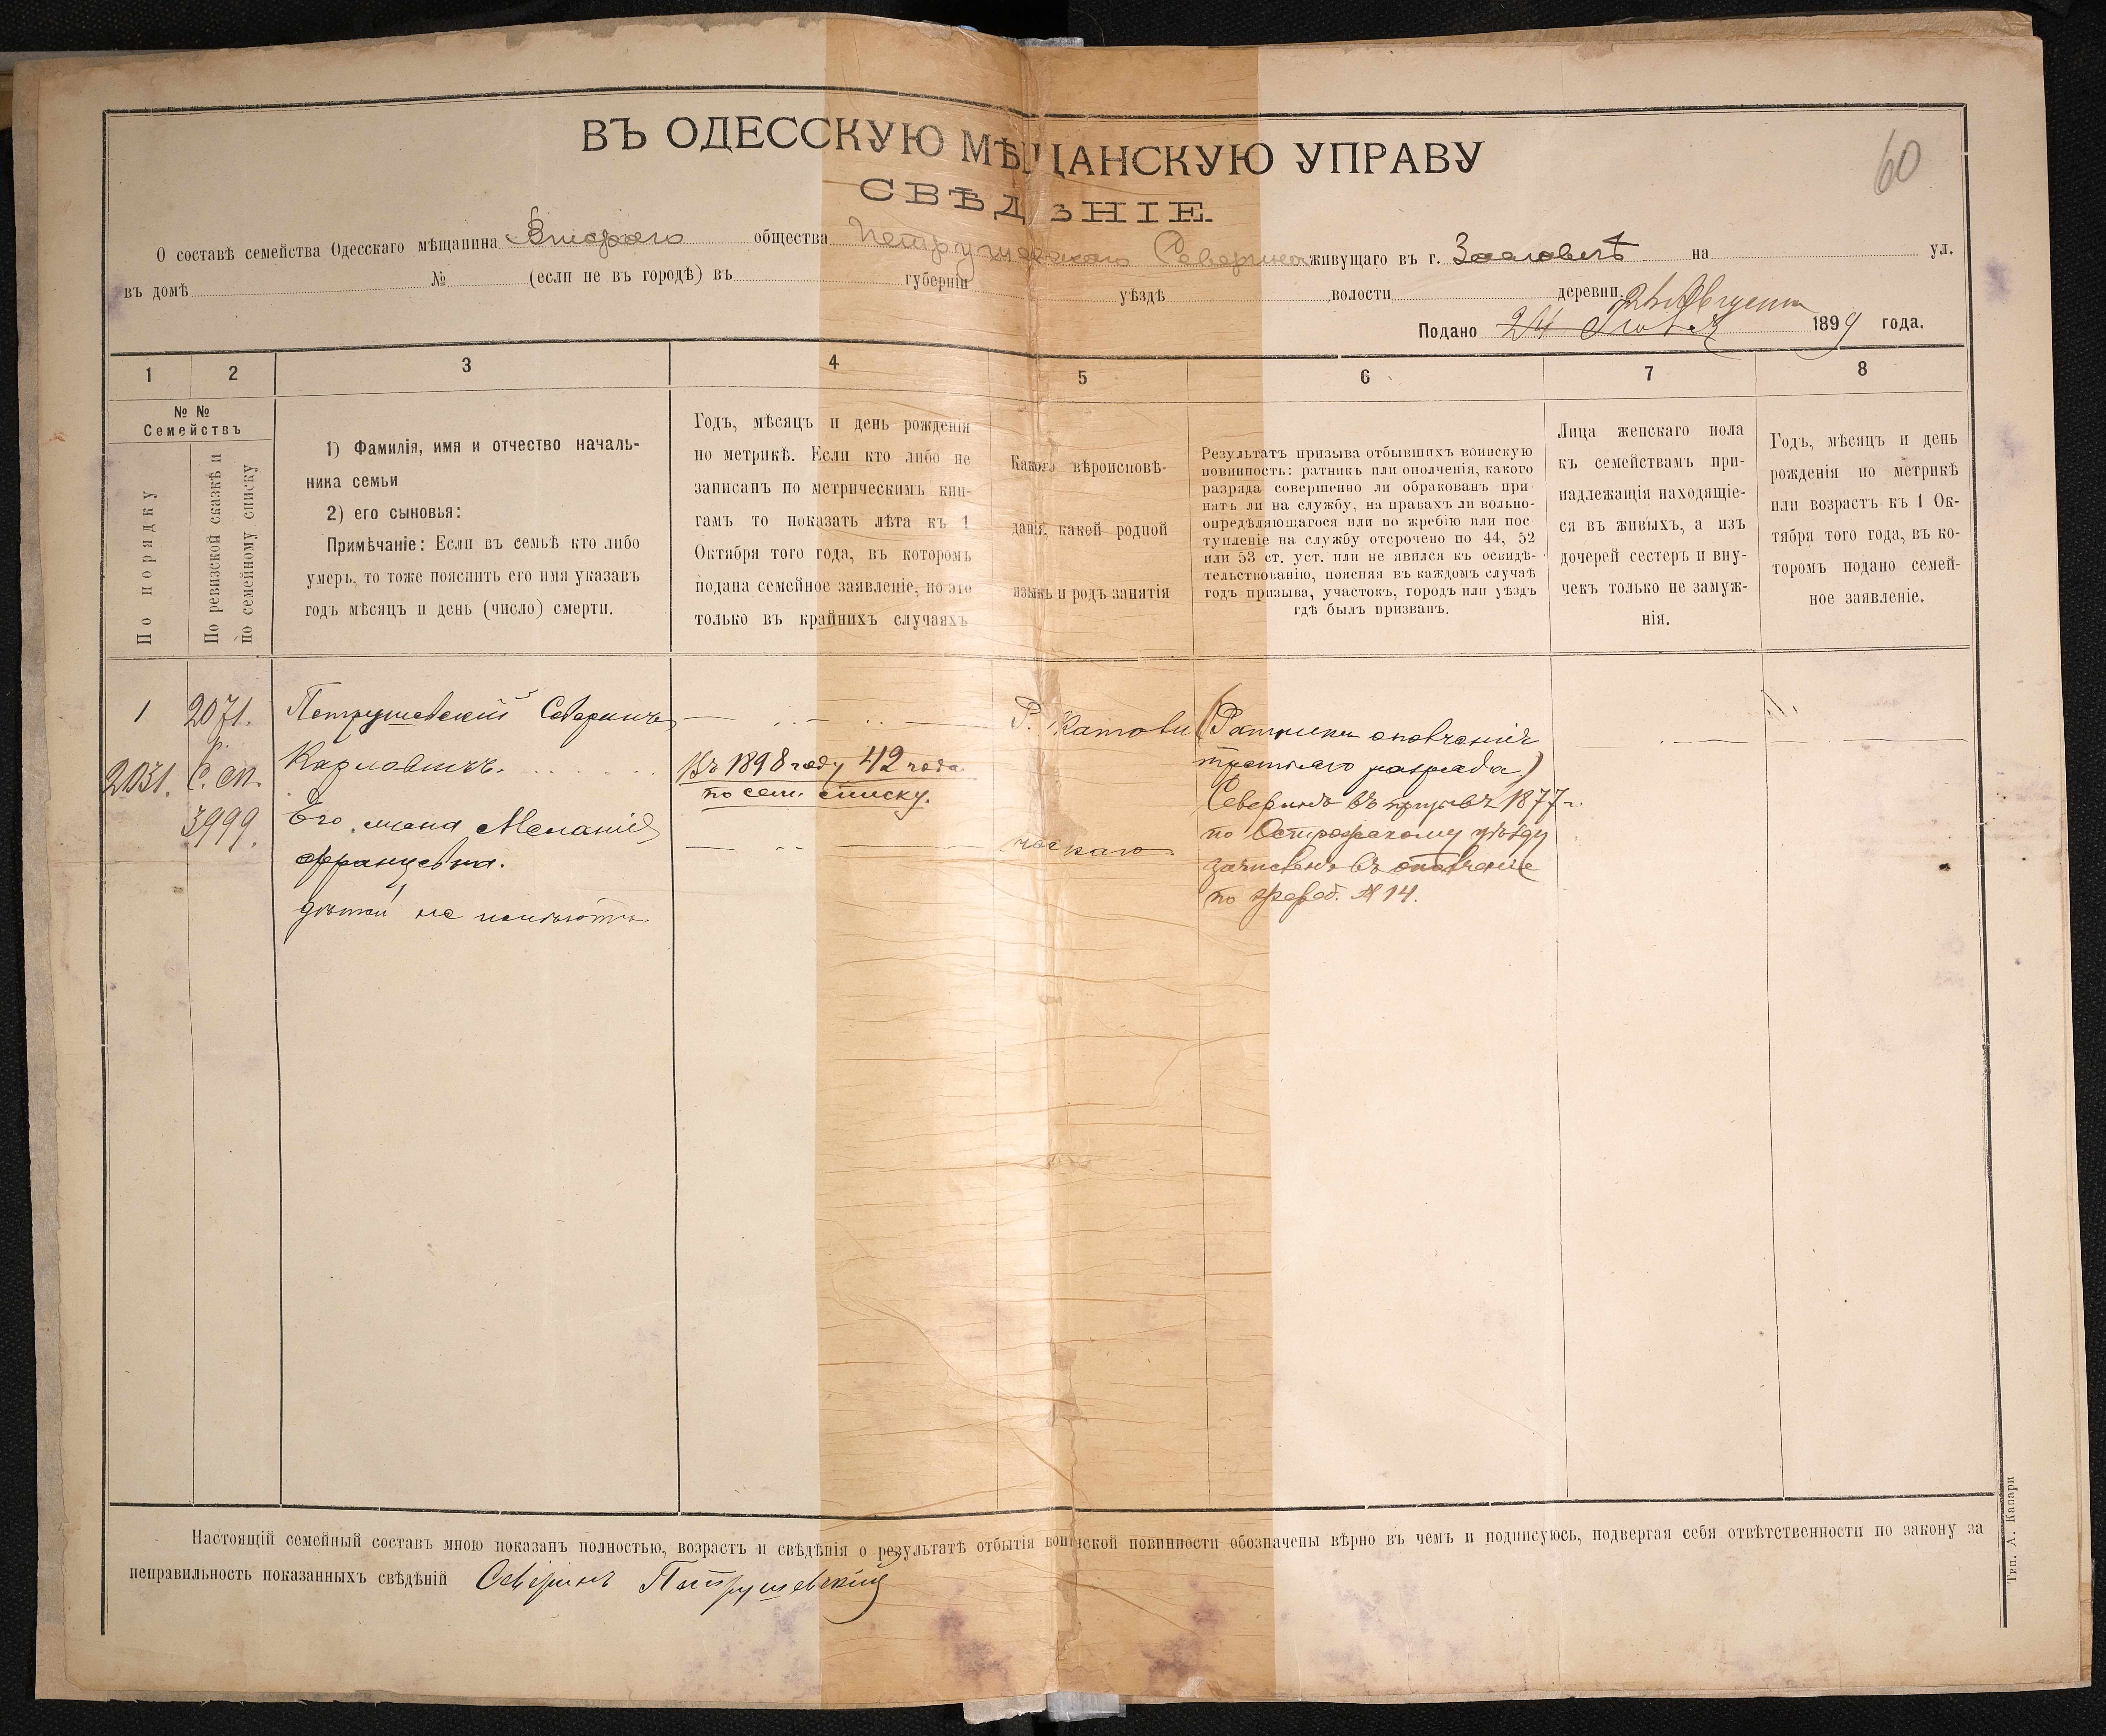 60
ВЪ ОДЕССКУЮ МѢЩАНСКУЮ УПРАВУ
СВѢДѢНІЕ.
О составѣ семейства Одесскаго мѣщанина Второго общества Петрушевскаго Северина живущаго въ г. Заславлѣ на ул.
въ домѣ № (если не въ городѣ) въ губерніи уѣздѣ волости деревни
Августа
Подано 24 1899 года.
1 2 3 4 5 6 7 8
№ № Семействъ
По порядку
По ревизской сказкѣ и
по семейному списку
1) Фамилія, имя и отчество началь-
ника семьи
2) его сыновья:
Примѣчаніе: Если въ семьѣ кто либо
умеръ, то тоже пояснить его имя указавъ
годъ мѣсяцъ и день (число) смерти.
Годъ, мѣсяцъ и день рожденія
по метрикѣ. Если кто либо не
записанъ по метрическимъ кни-
гамъ то показать лѣта къ 1
Октября того года, въ которомъ
подана семейное заявленіе, но это
только въ крайнихъ случаяхъ
Какого вѣроисповѣ-
данія, какой родной
языкъ и родъ занятія
Результатъ призыва отбывшихъ воинскую
повинность: ратникъ или ополченія, какого
разряда совершенно ли обракованъ при-
нятъ ли на службу, на правахъ ли вольно-
опредѣляющагося или по жребію или пос-
тупленіе на службу отсрочено по 44, 52
или 53 ст. уст. или не явился къ освидѣ-
тельствованію, поясняя въ каждомъ случаѣ
годъ призыва, участокъ, городъ или уѣздъ
гдѣ былъ призванъ.
Лица женскаго пола
къ семействамъ при-
надлежащія находящіе-
ся въ живыхъ, а изъ
дочерей сестеръ и вну-
чекъ только не замуж-
нія.
Годъ, мѣсяцъ и день
рожденія по метрикѣ
или возрастъ къ 1 Ок-
тября того года, въ ко-
торомъ подано семей-
ное заявленіе.
1
2031.
2071.
р.
С. сп.
3999.
Петрушевскій Северинъ
Карловичъ.
Его жена Меланія
Францевна.
дѣтей не имѣютъ.
Въ 1898 году 42 года
по сем. списку.
Р. Католи
ческаго
(Ратникъ ополченія
третьяго разряда)
Северинъ въ призывъ 1877 г.
по Острожскому уѣзду
зачисленъ въ ополченіе
по жреб. № 14.
Настоящій семейный составъ мною показанъ полностью, возрастъ и свѣдѣнія о результатѣ отбытія воинской повинности обозначены вѣрно въ чемъ и подписуюсь, подвергая себя отвѣтственности по закону за
неправильность показанныхъ свѣдѣній Северинъ Петрушевскій
Тип. А. Капари